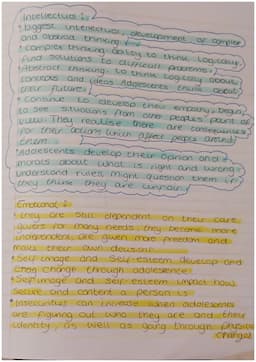 Intellectual :
• biggest intellectual development of complex
and abstract thinking.
• Complex thinking: Ability to think logically,
find solutions to difficult problems.
• Abstract thinking: to think logically about
concepts and ideas. Adolescents think about
their future.
• Continue to develop their empathy, begin
to see situations from other peoples point of
view. They realise there are consequences
for their actions which affect people around
them.
• Adolescents develop their opinion and
morals about what is right and wrong.
Understand rules, might question them if
they think they are unfair.
Emotional :
• They are still dependent on their care
givers for many needs they become more
independent, are given more freedom and
make their own decision.
• Self image and self esteem develop and
change through adolescence.
• Self image and self esteem impact how
secure and content a person is.
• Insecurities can increase when adolescents
are figuring out who they are and their
identity as well as going through physical
changes